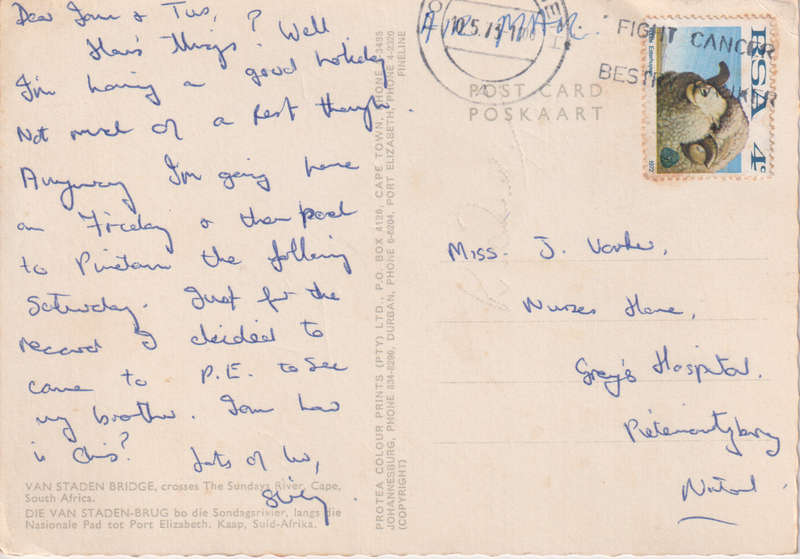 Dear Jom & Tus,
How's things? Well
I'm having a good holiday
Not much of a Rest though
Anyway I'm going home
on Friday & then back
to Pinetown the following
Saturday. Just for the
record I decided to
come to P.E. to see
my brother. Jom how
is Chris?
Lots of luv,
VAN STADEN BRIDGE, crosses The Sundays River, Cape,
South Africa.
DIE VAN STADEN-BRUG bo die Sondagsrivier, langs die
Nasionale Pad tot Port Elizabeth. Kaap, Suid-Afrika.
PROTEA COLOUR PRINTS (PTY) LTD., P.O. BOX 4120, CAPE TOWN, PHONE
JOHANNESBURG, PHONE 834-8290, DURBAN, PHONE 6-6204, PORT ELIZABETH, PHONE
(COPYRIGHT)
PINELINE
AIR MAIL.
FIGHT CANCER
POST CARD
POSKAART
RSA 4c
1972
Miss. J.
Nurses Home,
Grey's Hospital.
Pietermaritzburg
Natal.